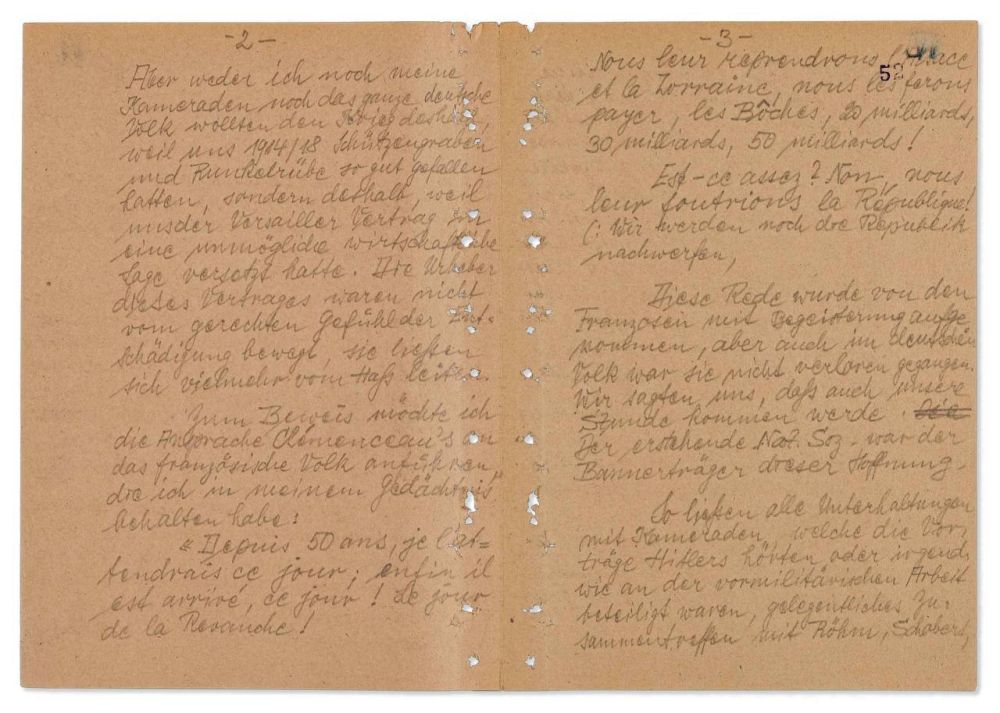 -2-
Aber weder ich noch meine
Kameraden noch das ganze deutsche
Volk wollten den Krieg deshalb,
weil uns 1914/18 Schützengraben
und Runkelrübe so gut gefallen
hatten, sondern deshalb, weil
uns der Versailler Vertrag in
eine unmögliche wirtschaftliche
Lage versetzt hatte. Die Urheber
dieses Vertrages waren nicht
vom gerechten Gefühl der Ent-
schädigung bewegt, sie ließen
sich vielmehr vom Haß leiten.
Zum Beweis möchte ich
die Ansprache Clémenceau's an
das französische Volk anführen,
die ich in meinem Gedächtnis
behalten habe:
"Depuis 50 ans, je l'at=
tendrais ce jour; enfin il
est arrivé, ce jour! Le jour
de la Revanche!
-3-
52
Nous leur reprendrons l'Alsace
et la Lorraine, nous les ferons
payer, les Bôches, 20 milliards,
30 milliards, 50 milliards!
Est-ce assez? Non, nous
leur foutrions la République!
(: Wir werden noch die Republik
nachwerfen,
Diese Rede wurde von den
Franzosen mit Begeisterung aufge
nommen, aber auch im deutschen
Volk war sie nicht verloren gegangen.
Wir sagten uns, daß auch unsere
Stunde kommen werde. Die
Der erstehende Nat. Soz. war der
Bannerträger dieser Hoffnung.
So ließen alle Unterhaltungen
mit Kameraden, welche die Vor-
träge Hitlers hörten oder irgend-
wie an der vormilitärischen Arbeit
beteiligt waren, gelegentliches Zu-
sammentreffen mit Röhm, Schobert,